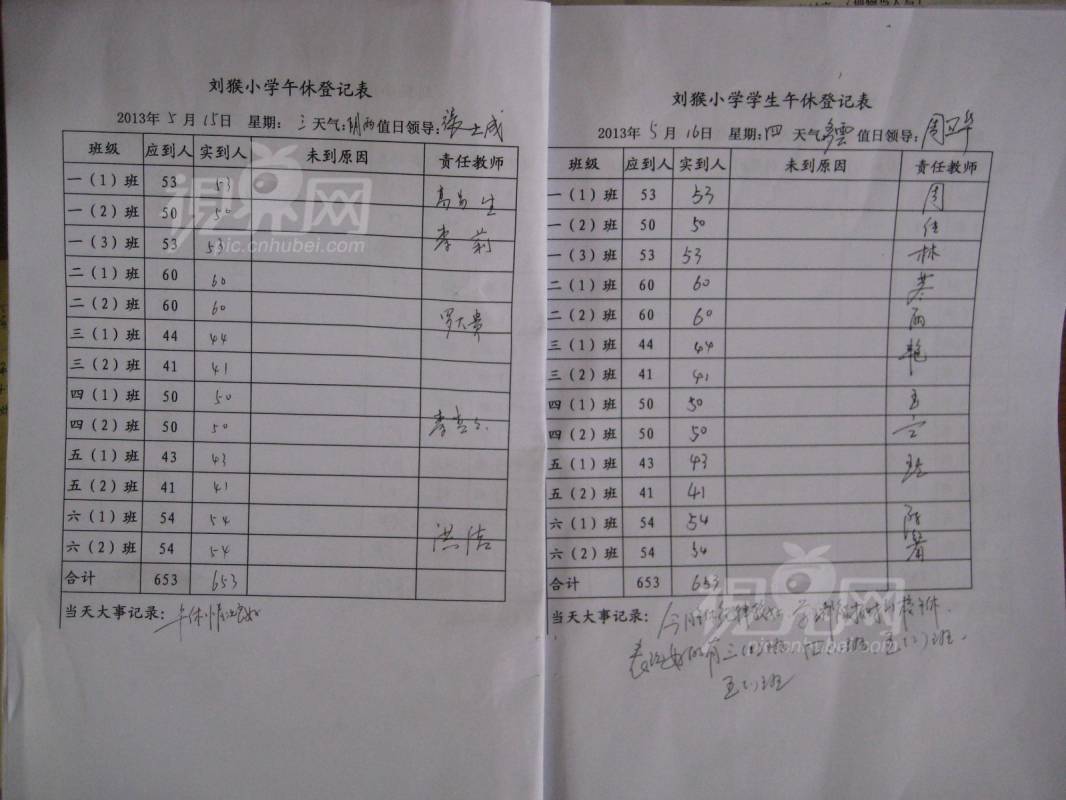 刘猴小学午休登记表
2013年 5 月 15日 星期： 三 天气：阴雨 值日领导：张士成
班级 应到人 实到人 未到原因 责任教师
一（1）班 53 53
一（2）班 50 50
一（3）班 53 53 李莉
二（1）班 60 60
二（2）班 60 60 罗大贵
三（1）班 44 44
三（2）班 41 41
四（1）班 50 50
四（2）班 50 50
五（1）班 43 43
五（2）班 41 41
六（1）班 54 54 洪洁
六（2）班 54 54
合计 653 653
当天大事记录： 午休情况良好
刘猴小学学生午休登记表
2013年 5 月 16日 星期：四 天气：多雲 值日领导：周卫华
班级 应到人 实到人 未到原因 责任教师
一（1）班 53 53 周
一（2）班 50 50
一（3）班 53 53 林
二（1）班 60 60
二（2）班 60 60
三（1）班 44 44 艳
三（2）班 41 41
四（1）班 50 50
四（2）班 50 50
五（1）班 43 43
五（2）班 41 41
六（1）班 54 54
六（2）班 54 54
合计 653 653
当天大事记录：
五（2）班
视界网
pic.cnhubei.com
视界网
pic.cnhubei.com